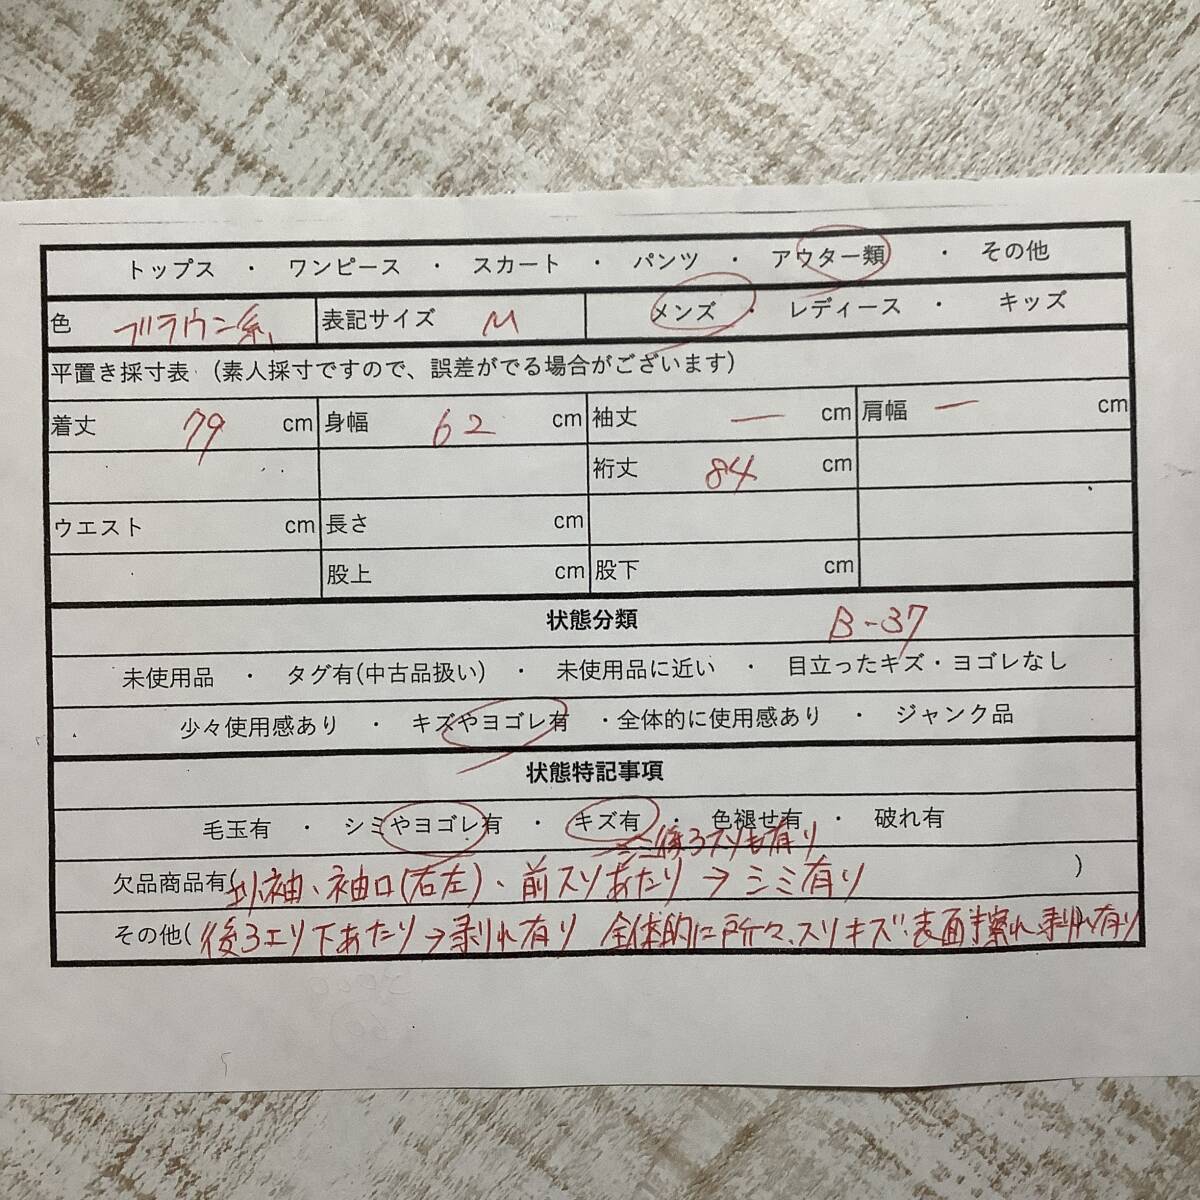 トップス ・ ワンピース ・ スカート ・ パンツ ・ アウター類 ・ その他
色 ブラウン系 表記サイズ M メンズ ・ レディース ・ キッズ
平置き採寸表 (素人採寸ですので、誤差がでる場合がございます)
着丈 79 cm 身幅 62 cm 袖丈 ー cm 肩幅 ー cm
裄丈 84 cm
ウエスト cm 長さ cm
股上 cm 股下 cm
状態分類 B-37
未使用品 ・ タグ有(中古品扱い) ・ 未使用品に近い ・ 目立ったキズ・ヨゴレなし
少々使用感あり ・ キズやヨゴレ有 ・全体的に使用感あり ・ ジャンク品
状態特記事項
毛玉有 ・ シミやヨゴレ有 ・ キズ有 ・ 色褪せ有 ・ 破れ有
後ろスソも有り
欠品商品有( 袖、袖口(右左)、前スソあたり→シミ有り )
その他( 後ろエリ下あたり→剥れ有り 全体的に所々、スリキズ、表面擦れ、剥れ有り